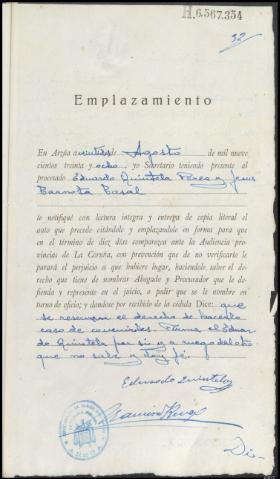 H.6.567.354
32
Emplazamiento
En Arzúa a veintitres de Agosto de mil nueve
cientos treinta y ocho, yo Secretario teniendo presente al
procesado Eduardo Quintela Perez y Jesus
Barnota Casal
le notifiqué con lectura integra y entrega de copia literal el
auto que precede citándole y emplazándole en forma para que
en el término de diez dias comparezca ante la Audiencia pro-
vincias de La Coruña, con prevención que de no verificarlo le
parará el perjuicio a que hubiere lugar, haciéndole, saber el dere-
cho que tiene de nombrar Abogado y Procurador que le de-
fienda y represente en el juicio, a pedir que se le nombre en
turno de oficio; y dandose por recibido de la cédula Dice: que
se reservan el derecho de hacerlo
caso de convenirles. Firma el Eduar-
do Quintela por si y a ruego del otro
que no sabe y doy fé.
Eduardo Quintela
Ramiro